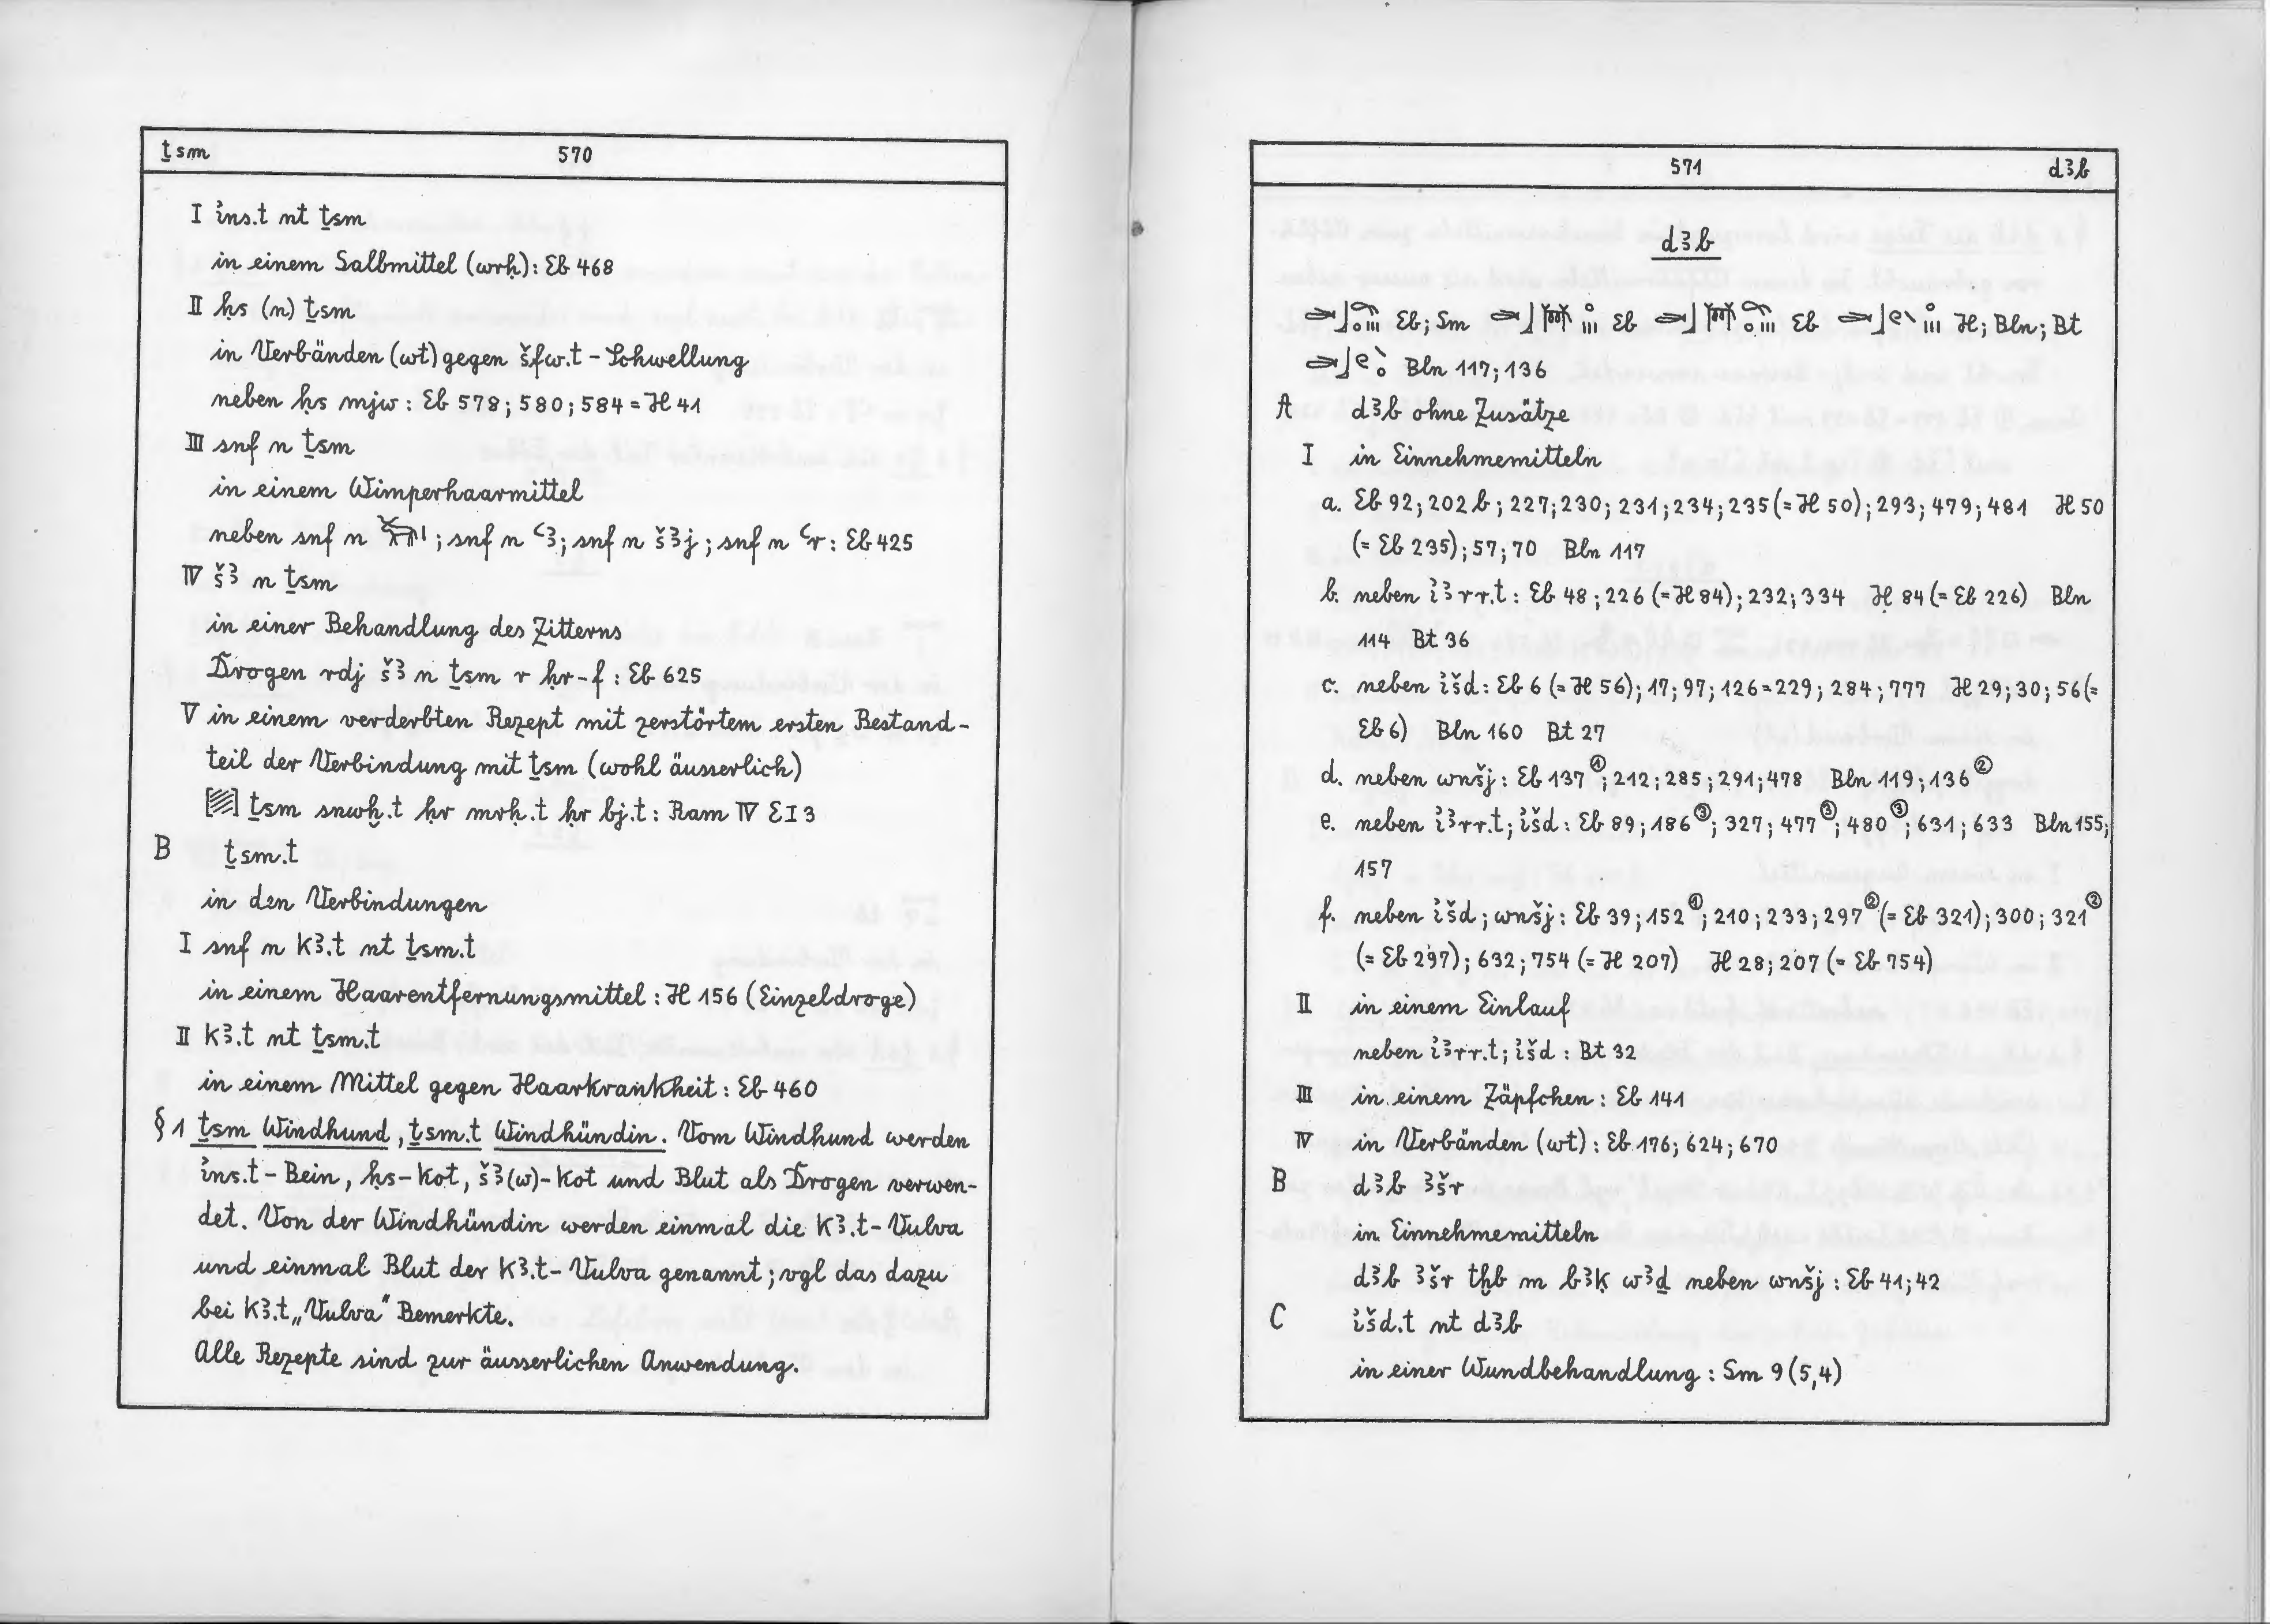 ṯsm 570
I ı͗ns.t nt ṯsm
in einem Salbmittel (wrḥ): Eb 468
II ḥs (n) ṯsm
in Verbänden (wt) gegen šfw.t-Schwellung
neben ḥs mjw: Eb 578; 580; 584 = H 41
III snf n ṯsm
in einem Wimperhaarmittel
neben snf n ; snf n ꜥꜣ; snf n šꜣj; snf n ꜥr: Eb 425
IV šꜣ n ṯsm
in einer Behandlung des Zitterns
Drogen rdj šꜣ n ṯsm r ḥr-f: Eb 625
V in einem verderbten Rezept mit zerstörtem ersten Bestand-
teil der Verbindung mit ṯsm (wohl äusserlich)
[▨] ṯsm snwḫ.t ḥr mrḥ.t ḥr bj.t: Ram IV E I 3
B ṯsm.t
in den Verbindungen
I snf n kꜣ.t nt ṯsm.t
in einem Haarentfernungsmittel: H 156 (Einzeldroge)
II kꜣ.t nt ṯsm.t
in einem Mittel gegen Haarkrankheit: Eb 460
§ 1 ṯsm Windhund, ṯsm.t Windhündin. Vom Windhund werden
ı͗ns.t-Bein, ḥs-Kot, šꜣ(w)-Kot und Blut als Drogen verwen-
det. Von der Windhündin werden einmal die kꜣ.t-Vulva
und einmal Blut der kꜣ.t-Vulva genannt; vgl das dazu
bei kꜣ.t „Vulva" Bemerkte.
Alle Rezepte sind zur äusserlichen Anwendung.
571 dꜣb
dꜣb
Eb; Sm Eb Eb H; Bln; Bt
Bln 117; 136
A dꜣb ohne Zusätze
I in Einnehmemitteln
a. Eb 92; 202b; 227; 230; 231; 234; 235 (= H 50); 293; 479; 481 H 50
(= Eb 235); 57; 70 Bln 117
b. neben ı͗ꜣrr.t: Eb 48; 226 (= H 84); 232; 334 H 84 (= Eb 226) Bln
114 Bt 36
c. neben ı͗šd: Eb 6 (= H 56); 17; 97; 126 = 229; 284; 777 H 29; 30; 56 (=
Eb 6) Bln 160 Bt 27
d. neben wnšj: Eb 137①; 212; 285; 291; 478 Bln 119; 136②
e. neben ı͗ꜣrr.t; ı͗šd: Eb 89; 186③; 327; 477③; 480③; 631; 633 Bln 155;
157
f. neben ı͗šd; wnšj: Eb 39; 152①; 210; 233; 297② (= Eb 321); 300; 321②
(= Eb 297); 632; 754 (= H 207) H 28; 207 (= Eb 754)
II in einem Einlauf
neben ı͗ꜣrr.t; ı͗šd: Bt 32
III in einem Zäpfchen: Eb 141
IV in Verbänden (wt): Eb 176; 624; 670
B dꜣb ꜣšr
in Einnehmemitteln
dꜣb ꜣšr tḫb m bꜣḳ wꜣḏ neben wnšj: Eb 41; 42
C ı͗šd.t nt dꜣb
in einer Wundbehandlung: Sm 9 (5,4)